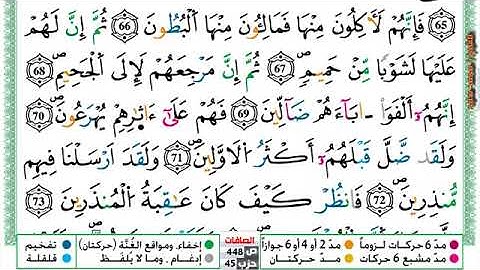 65 فَإِنَّهُمْ لَأَكِلُونَ مِنْهَا فَمَالِـُٔونَ مِنْهَا اَلْبُطُونَ 66 ثُمَّ إِنَّ لَهُمْ
عَلَيْهَا لَشَوْباً مِّنْ حَمِيمٍ 67 ثُمَّ إِنَّ مَرْجِعَهُمْ لَإِلَى اَلْجَحِيمِ 68
إِنَّهُمُۥ أَلْفَوَاْ ابَآءَهُمْ ضَآلِّينَ 69 فَهُمْ عَلَىٰٓ ءَاثٰ۪رِهِمْ يُهْرَعُونَ 70
وَلَقَد ضَّلَّ قَبْلَهُمُۥٓ أَكْثَرُ اُلَاوَّلِينَ 71 وَلَقَدَ اَرْسَلْنَا فِيهِم
مُّنذِرِينَ 72 فَانظُرْ كَيْفَ كَانَ عَٰقِبَةُ اُلْمُنذَرِينَ 73
مدّ 6 حركات لزوماً مدّ 2 أو 4 أو 6 جوازاً الصافات إخفاء، ومواقع الغُنَّة (حركتان) تفخيم
مدّ مشبع 6 حركات مدّ حركتان 448 حزب 45 إدغام، وما لا يُلفَظ قلقلة